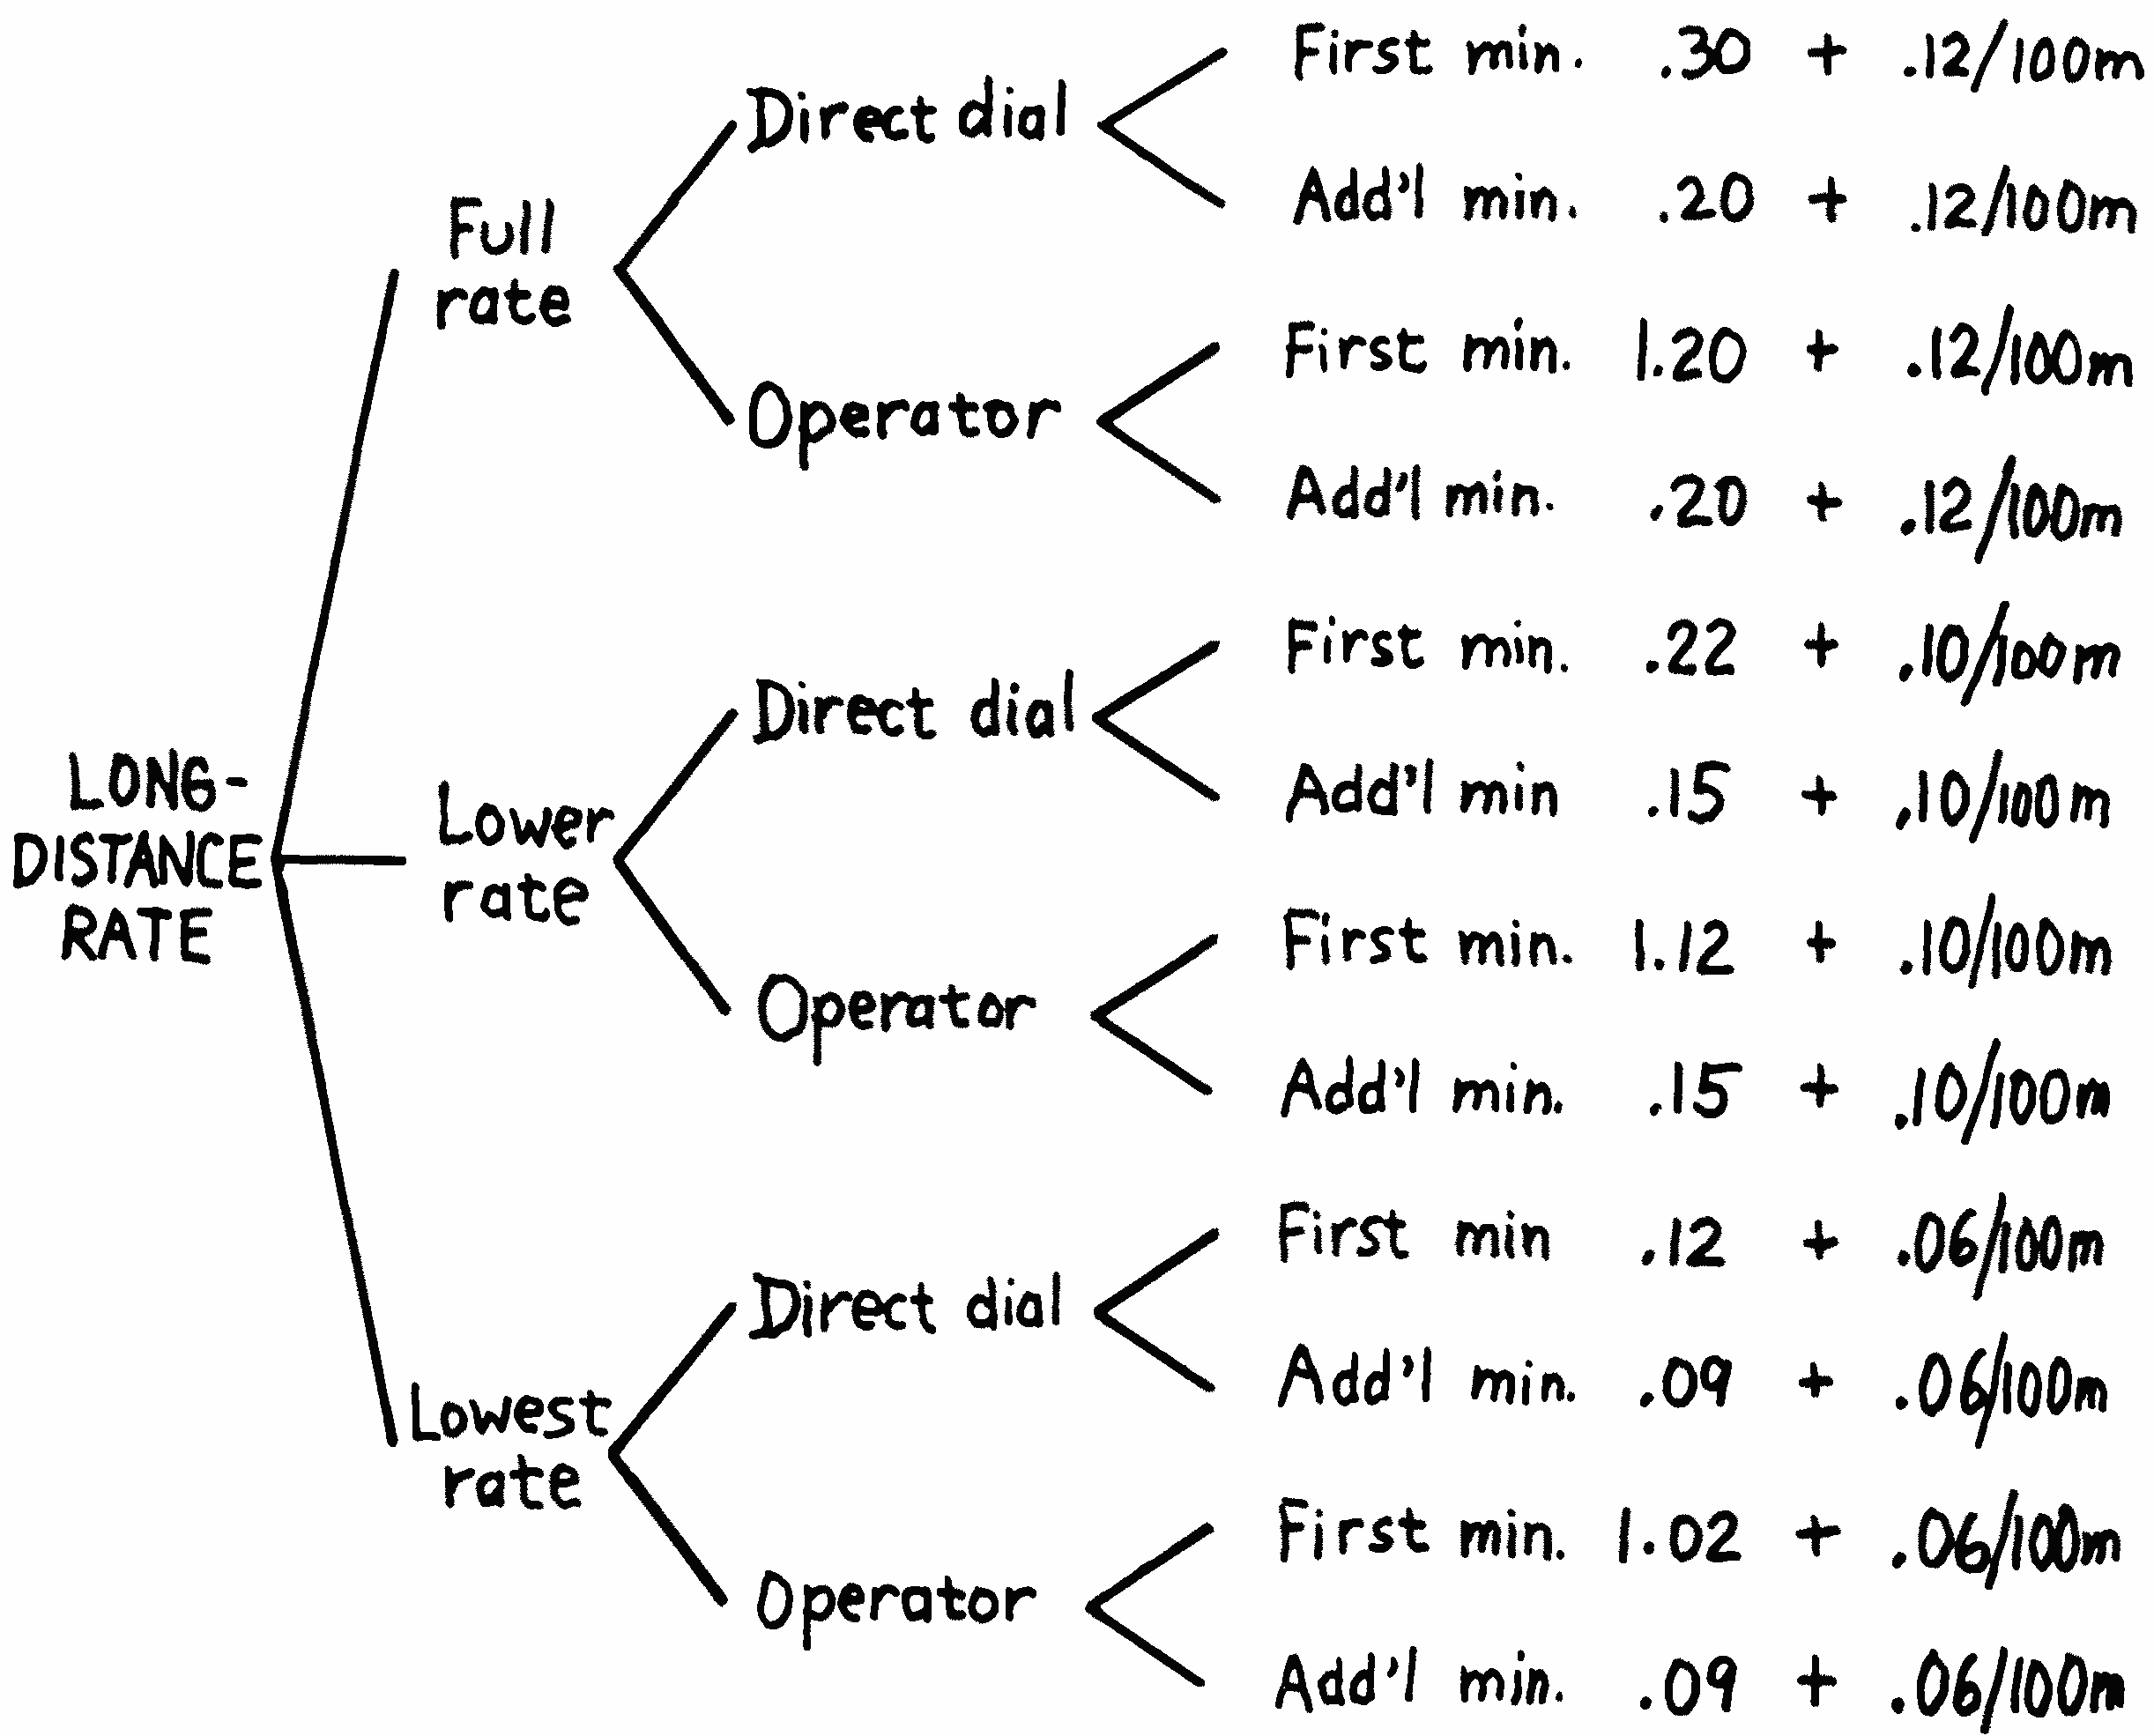 LONG-
DISTANCE
RATE
Full
rate
Direct dial
First min. .30 + .12/100m
Add'l min. .20 + .12/100m
Operator
First min. 1.20 + .12/100m
Add'l min. .20 + .12/100m
Lower
rate
Direct dial
First min. .22 + .10/100m
Add'l min .15 + .10/100m
Operator
First min. 1.12 + .10/100m
Add'l min. .15 + .10/100m
Lowest
rate
Direct dial
First min .12 + .06/100m
Add'l min. .09 + .06/100m
Operator
First min. 1.02 + .06/100m
Add'l min. .09 + .06/100m